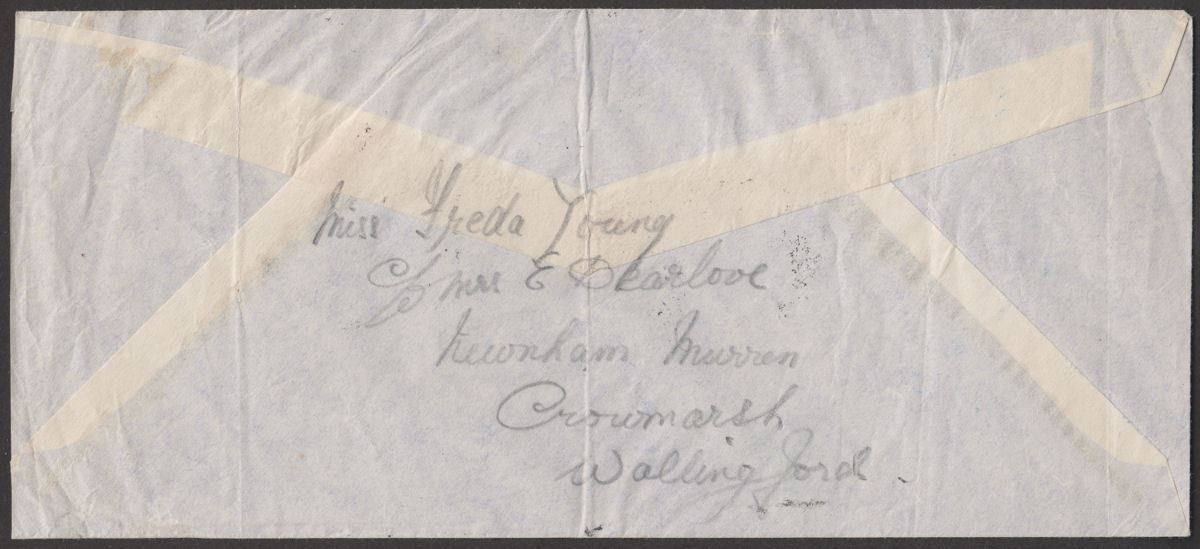 Miss Freda Young
C/o Mrs E Dearlove
Newnham Murren
Crowmarsh
Wallingford.